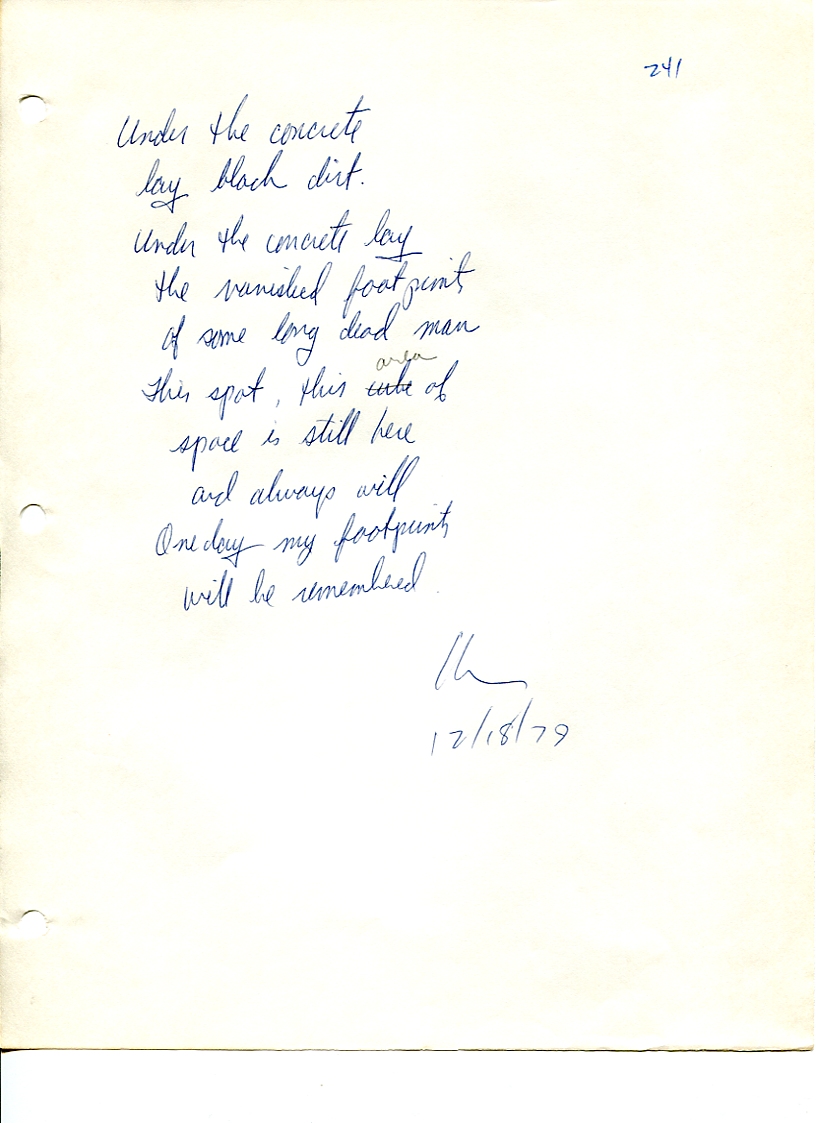 241
Under the concrete
lay black dirt.
Under the concrete lay
the vanished footprints
of some long dead man
area
This spot, this cube of
space is still here
and always will
One day my footprints
will be remembered.
12/18/79